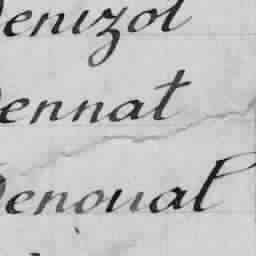 Denizot
Dennat
Denoual